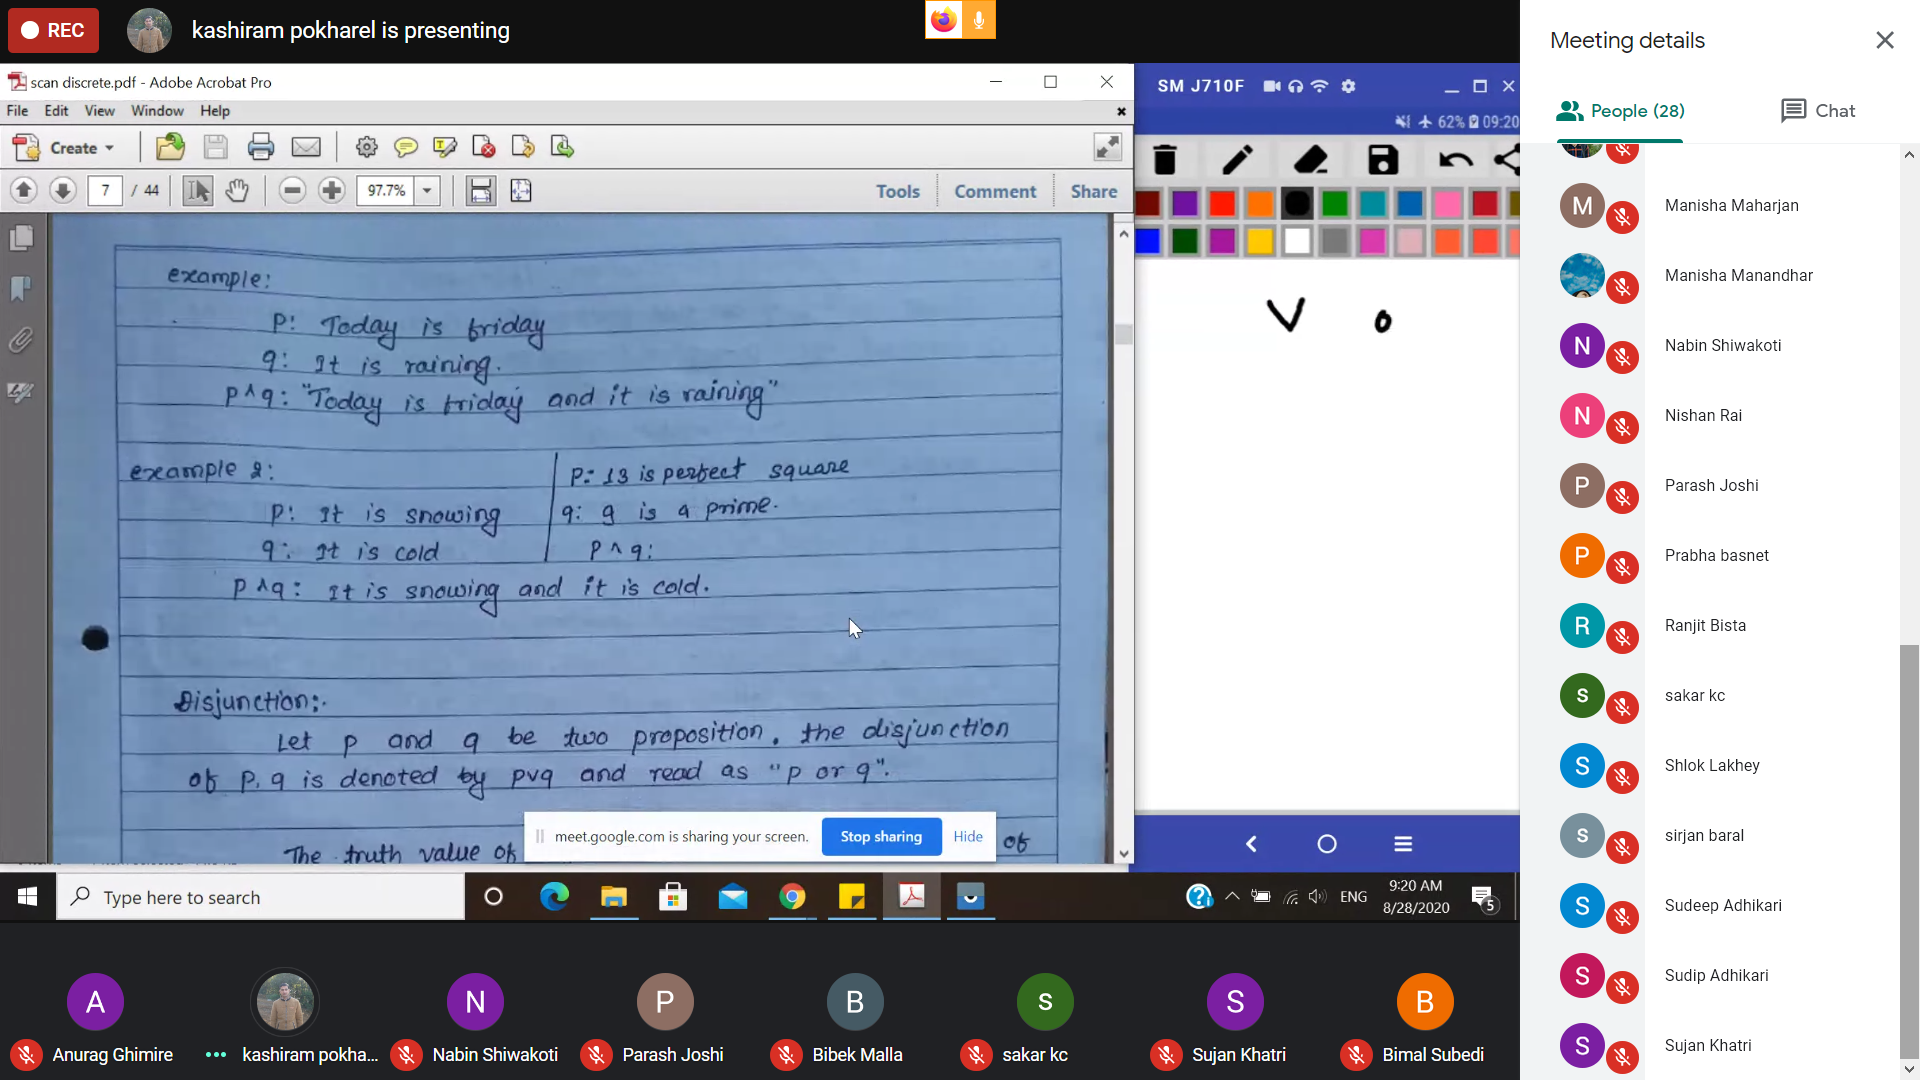 REC
kashiram pokharel is presenting
scan discrete.pdf - Adobe Acrobat Pro
File Edit View Window Help
Create
7 / 44
97.7%
Tools Comment Share
example:
p: Today is friday
q: It is raining.
p ∧ q: "Today is friday and it is raining"
example 2:
p: It is snowing
q: It is cold
p ∧ q: It is snowing and it is cold.
p: 13 is perfect square
q: 9 is a prime.
p ∧ q:
Disjunction:
Let p and q be two proposition, the disjunction
of p, q is denoted by p∨q and read as "p or q".
The truth value of
of
meet.google.com is sharing your screen.
Stop sharing
Hide
SM J710F
62% 09:20
V o
Type here to search
ENG
9:20 AM
8/28/2020
5
A
Anurag Ghimire
kashiram pokha...
N
Nabin Shiwakoti
P
Parash Joshi
B
Bibek Malla
s
sakar kc
S
Sujan Khatri
B
Bimal Subedi
Meeting details
People (28)
Chat
M
Manisha Maharjan
Manisha Manandhar
N
Nabin Shiwakoti
N
Nishan Rai
P
Parash Joshi
P
Prabha basnet
R
Ranjit Bista
s
sakar kc
S
Shlok Lakhey
s
sirjan baral
S
Sudeep Adhikari
S
Sudip Adhikari
S
Sujan Khatri